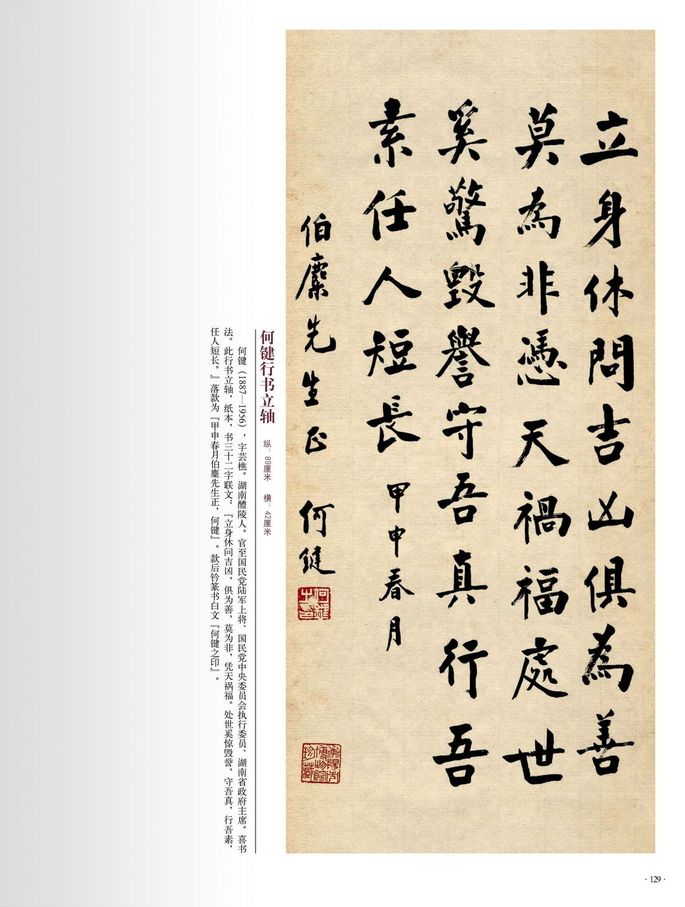 立身休問吉凶俱為善
莫為非憑天禍福處世
奚驚毀譽守吾真行吾
素任人短長 甲申春月
伯麋先生正 何鍵
何鍵之印
何键行书立轴
纵：89厘米 横：42厘米
何键（1887—1956），字芸樵。湖南醴陵人。官至国民党陆军上将、国民党中央委员会执行委员、湖南省政府主席。喜书
法。此行书立轴，纸本，书三十二字联文：『立身休问吉凶，俱为善，莫为非，凭天祸福。处世奚惊毁誉，守吾真，行吾素，
任人短长。』落款为『甲申春月伯麋先生正，何键』。款后钤篆书白文『何键之印』。
· 129 ·